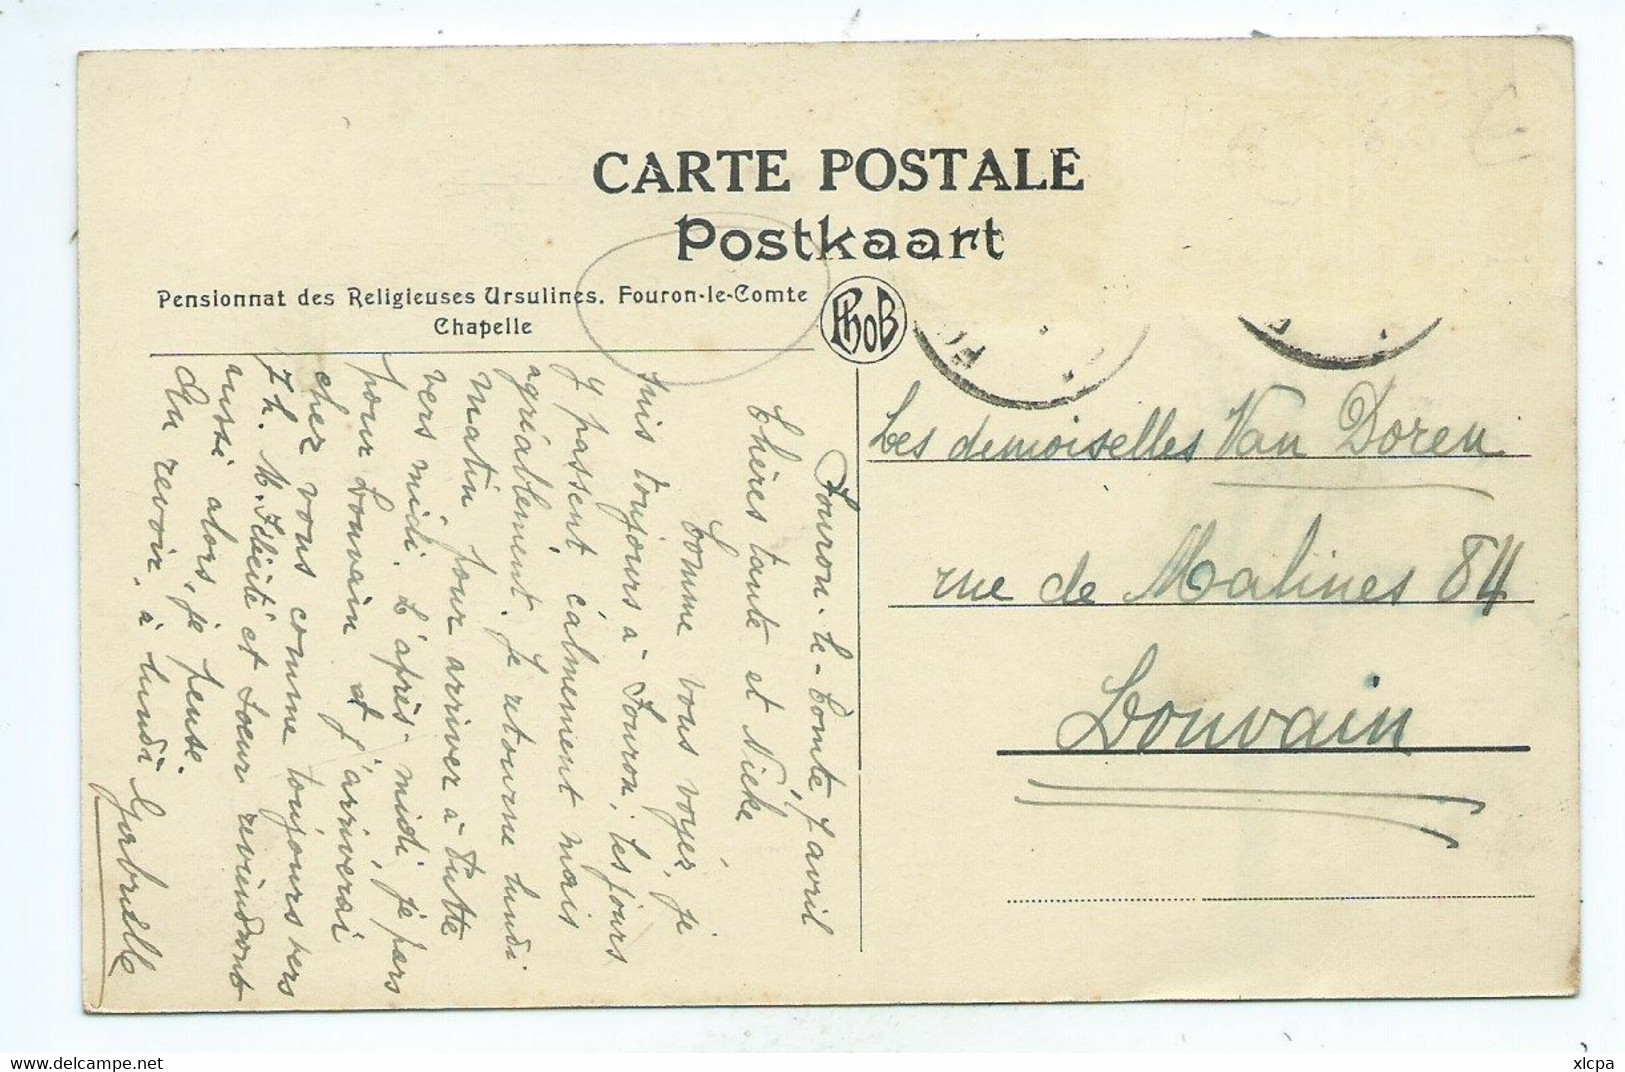 CARTE POSTALE
Postkaart
Pensionnat des Religieuses Ursulines. Fouron-le-Comte
Chapelle
PhoB
Fouron-le-Comte, 7 avril
Chères tante et Nieke
Comme vous voyez, je
suis toujours à Fouron, les jours
y passent calmement mais
agréablement. Je retourne lundi
matin pour arriver à
vers midi. L'après-midi je pars
pour Louvain et j'arriverai
chez vous comme toujours vers
7h. M. Félicité et Soeur reviendront
aussi alors, je pense.
Au revoir, à lundi
Gabrielle
Les demoiselles Van Doren
rue de Malines 84
Louvain
xlcpa